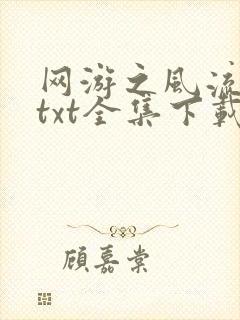 网游之风流
txt全集下载
顾嘉棠